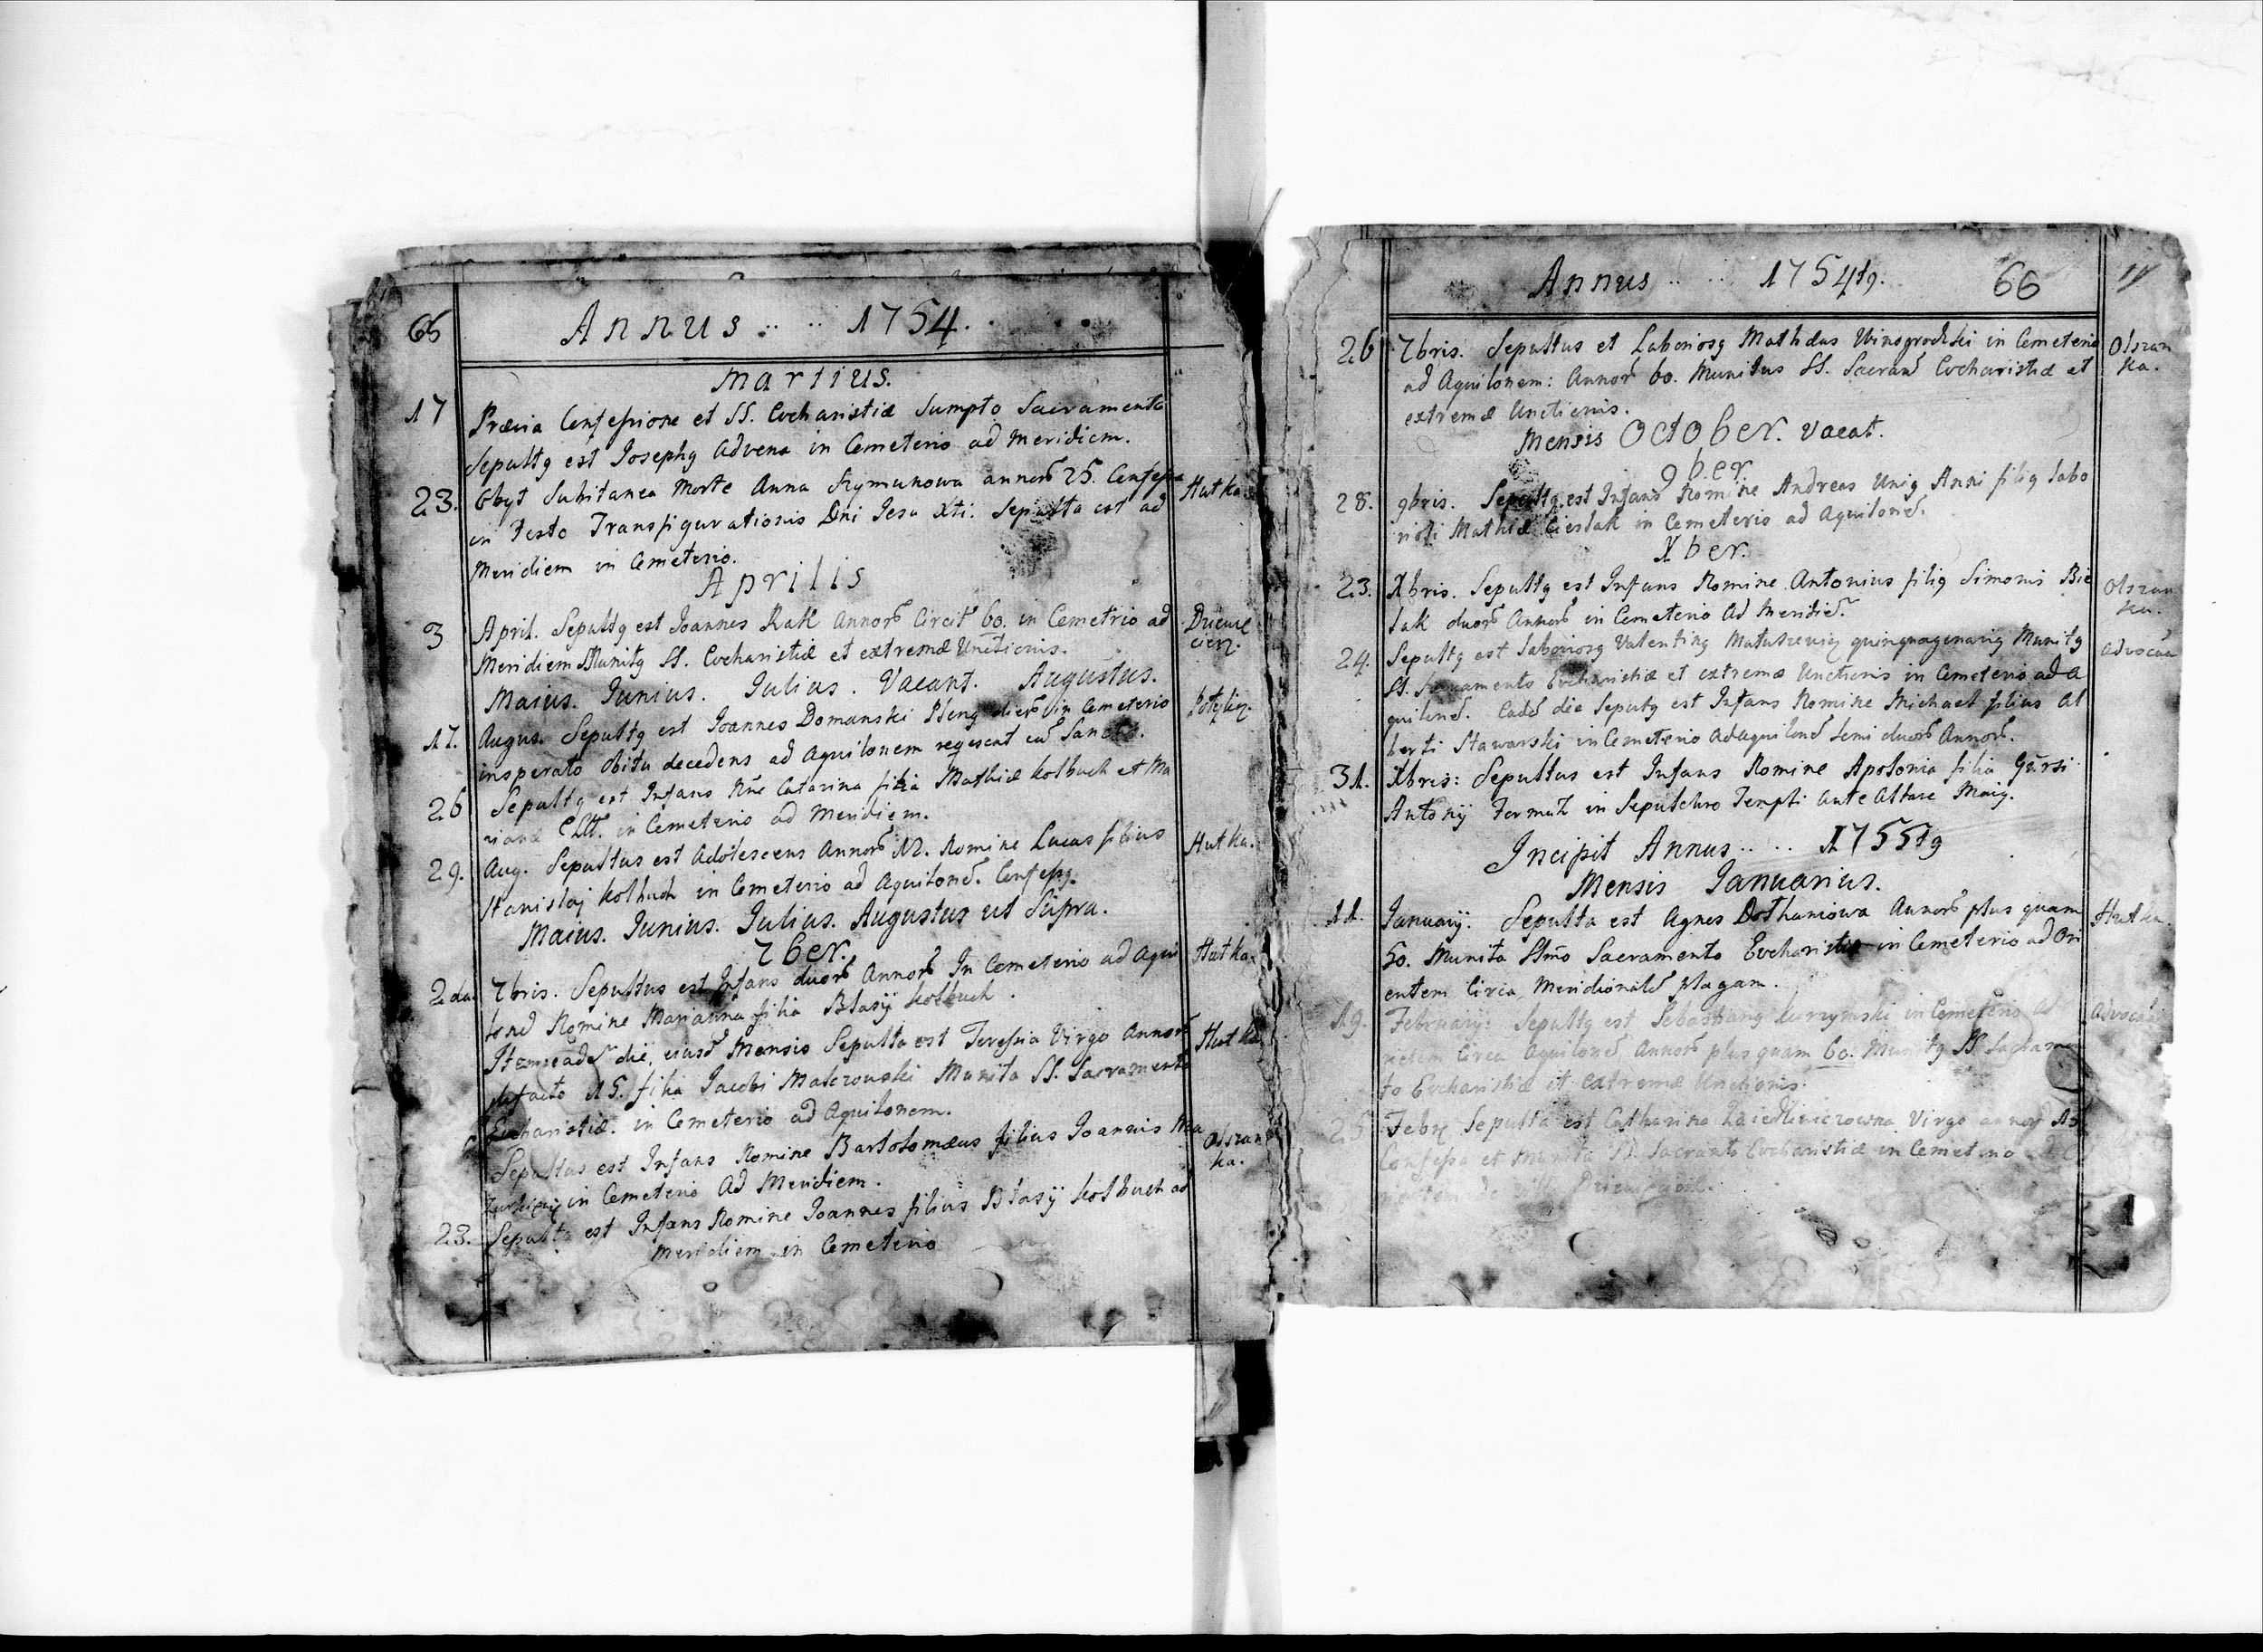 65 Annus .. .. 1754.
Martius.
17 Prævia Confessione et SS. Evcharistiæ Sumpto Sacramento
Sepultq est Josephq Advena in Cemeterio ad Meridiem.
23. Obyt Subitanea Morte Anna Szymunowa annorũ 25. Confessa Hutka.
in Festo Transfigurationis Dni Jesu Xti. Sepulta est ad
Meridiem in Cemeterio.
Aprilis
3 April. Sepultq est Joannes Rak Annorũ Circit 60. in Cemetrio ad
Meridiem Munitq SS. Evcharistiæ et extremæ Unctionis.
Maius. Junius. Julius. Vacant. Augustus.
17. Augus. Sepultq est Joannes Domanski dierũ in Cemeterio
insperato obitu decedens ad Aquilonem reqescat cũ Sanctis.
26 Sepultq est Infans Nñe Catarina filia Mathiæ Kolbuch et Ma
rianæ in Cemeterio ad Meridiem.
29. Aug. Sepultus est Adolescens Annorũ 12. Nomine Lucas filius Hutka.
Stanislaj Kolbuch in Cemeterio ad Aquilonẽ. Confessq.
Maius. Junius. Julius. Augustus ut Supra.
7ber.
2da 7bris. Sepultus est Infans duorũ Annorũ In Cemeterio ad Aqui Hutka.
lonẽ Nomine Marianna filia Blasij Kolbuch.
Item eadẽ die, eiusdẽ Mensis Sepulta est Teressia Virgo Annorũ Hutka
15. filia Jacobi Malczouski Munita SS. Sacramento
Evcharistiæ. in Cemeterio ad Aquilonem.
Sepultus est Infans Nomine Bartolomæus filius Joannis Ma Olszan
in Cemeterio Ad Meridiem. ka.
23. Sepultq est Infans Nomine Joannes filius Blasij Kolbuch ad
Meridiem in Cemeterio
Annus .. .. 1754tq. 66
26 7bris. Sepultus et Laboriosq Mathæus Winogrodzki in Cemeterio Olszan
ad Aquilonem: Annorũ 60. Munitus SS. Sacramẽ Evcharistiæ et ka.
extremæ Unctionis.
Mensis October. Vacat.
9ber
28. 9bris. Sepultq est Infans Nomine Andreas Uniq Anni filiq labo
riosi Mathiæ Cieslak in Cemeterio ad Aquilonẽ.
Xber.
23. Xbris. Sepultq est Infans Nomine Antonius filiq Simonis Bie Olszan
lak duorũ Annorũ in Cemeterio Ad Meridiẽ. ka.
24. Sepultq est laboriosq Valentinq Matuszewicz quinquagenariq Munitq Advocac
SS. Sacramento Evcharistiæ et extremæ Unctionis in Cemeterio ad A
quilonẽ. Eadẽ die Sepultq est Infans Nomine Michael filius Al
berti Stawarski in Cemeterio ad aquilonẽ Semi duorũ Annorũ.
31. Xbris: Sepultus est Infans Nomine Apolonia filia
Antonij in Sepulchro Templi ante Altare Maiq.
Incipit Annus .. .. 1755tq
Mensis Januarius.
11. Januarij. Sepulta est Agnes Dothaniowa Annorũ plus quam Hutka.
50. Munita SSmo Sacramento Evcharistiæ in Cemeterio ad Ori
entem Circa Meridionalẽ plagam.
19. Februarij: Sepultq est Sebastianq Kurzynski in Cemeterio ad Advocac
Circa Aquilonẽ Annorũ plus quam 60. Munitq SS Sacramen
to Evcharistiæ et extremæ Unctionis.
25 Febr. Sepulta est Catharina Virgo annorũ
Confessa et Munita SS. Sacramto Evcharistiæ in Cemeterio